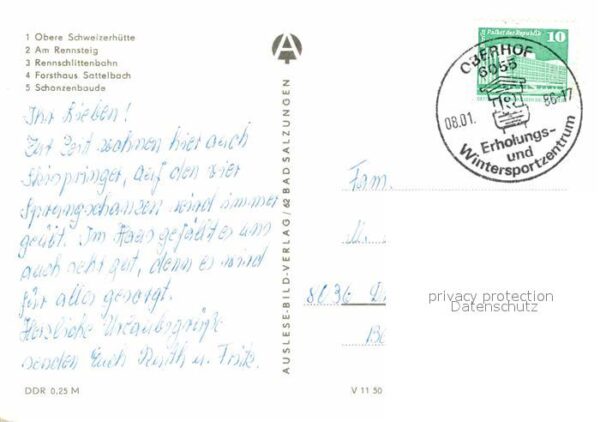 1 Obere Schweizerhütte
2 Am Rennsteig
3 Rennschlittenbahn
4 Forsthaus Sattelbach
5 Schanzenbaude
Ihr Lieben!
Zur Zeit wohnen hier auch
Skispringer, auf den vier
Sprungschanzen wird immer
geübt. Im Haus gefällt es uns
auch sehr gut, denn es wird
für alles gesorgt.
Herzliche Urlaubsgrüße
senden Euch Ruth u. Fritz.
DDR 0,25 M
AUSLESE-BILD-VERLAG/62 BAD SALZUNGEN
V 11 50
Palast der Republik
10
OBERHOF
6055
08.01. 86-17
Erholungs-
und
Wintersportzentrum
Fam.
privacy protection
Datenschutz